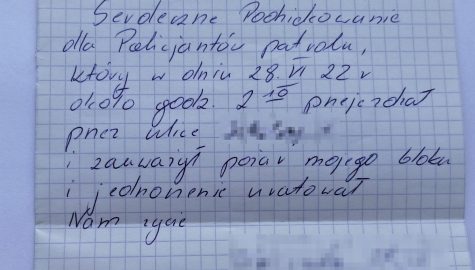 Serdeczne Podziękowanie
dla Policjantów patrolu,
który w dniu 28.VI 22 r
około godz. 2 10 przejeżdżał
przez ulice
i zauważył pożar mojego bloku
i jednocześnie uratował
Nam życie